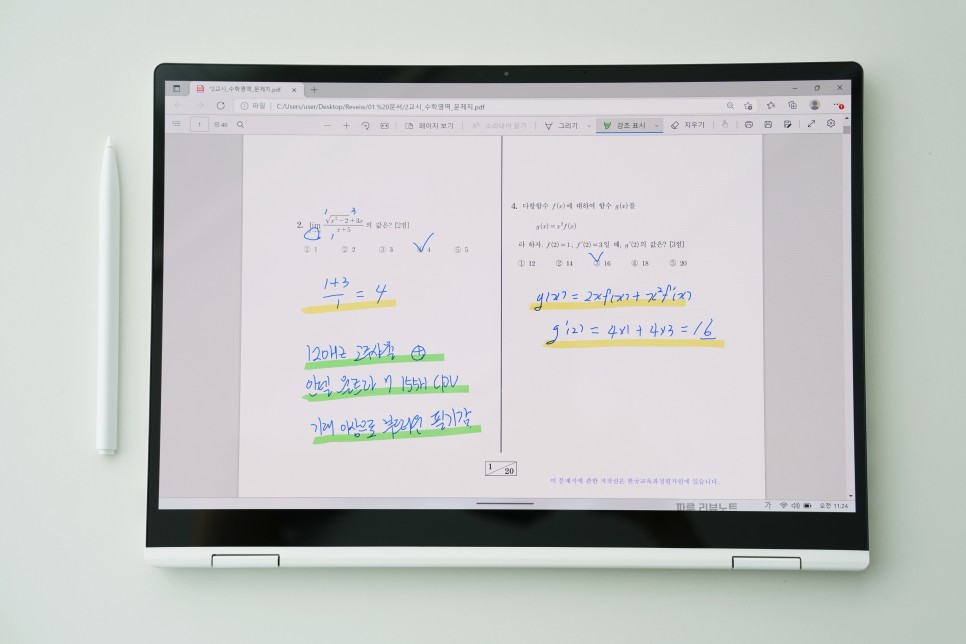 *2교시_수학영역_문제지.pdf
파일 C:/Users/user/Desktop/Reveiw/01.%20문서/2교시_수학영역_문제지.pdf
1 의 40 페이지 보기 소리내어 읽기 그리기 강조 표시 지우기
1 3
2. lim √x²−2+3x / x+5 의 값은? [2점]
1
① 1 ② 2 ③ 3 4 ⑤ 5
1+3 / 1 = 4
120Hz 고주사율 ⊕
인텔 울트라 7 155H CPU
기대 이상으로 부드러운 필기감
4. 다항함수 f(x)에 대하여 함수 g(x)를
g(x)=x²f(x)
라 하자. f(2)=1, f′(2)=3일 때, g′(2)의 값은? [3점]
① 12 ② 14 ③ 16 ④ 18 ⑤ 20
g'(x) = 2xf(x) + x²f'(x)
g'(2) = 4x1 + 4x3 = 16
1 / 20
이 문제지에 관한 저작권은 한국교육과정평가원에 있습니다.
따름 리뷰노트
가 오전 11:24